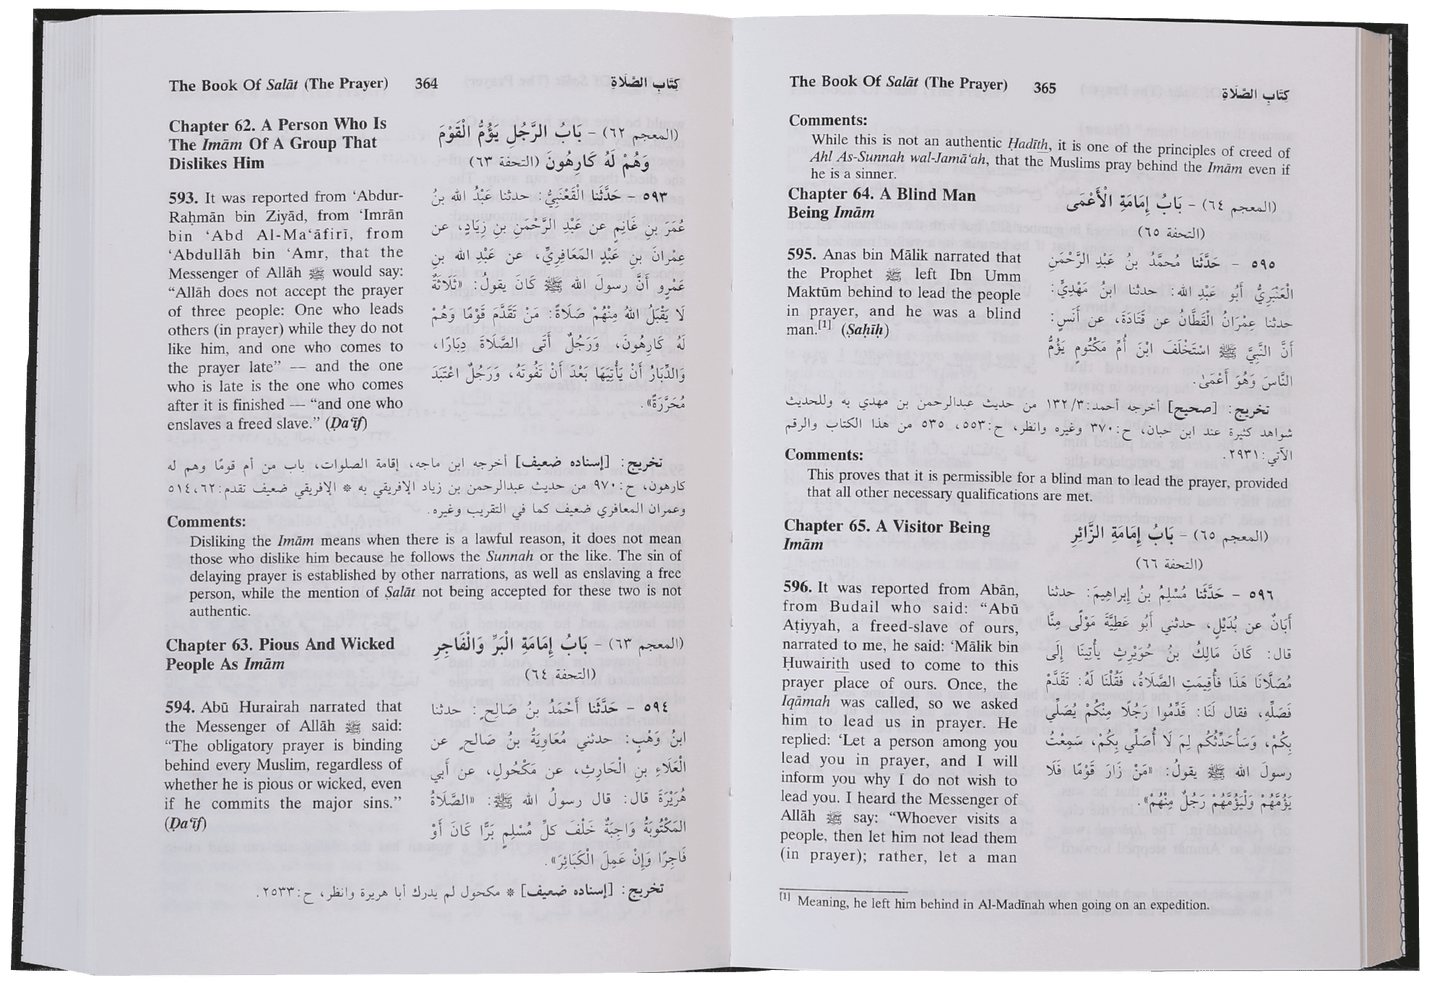 The Book Of Salāt (The Prayer) 364 كتاب الصلاة
Chapter 62. A Person Who Is
The Imām Of A Group That
Dislikes Him
(المعجم ٦٢) - بَابُ الرَّجُلِ يَؤُمُّ الْقَوْمَ
وَهُمْ لَهُ كَارِهُونَ (التحفة ٦٣)
593. It was reported from ‘Abdur-
Raḥmān bin Ziyād, from ‘Imrān
bin ‘Abd Al-Ma‘āfirī, from
‘Abdullāh bin ‘Amr, that the
Messenger of Allāh ﷺ would say:
“Allāh does not accept the prayer
of three people: One who leads
others (in prayer) while they do not
like him, and one who comes to
the prayer late” — and the one
who is late is the one who comes
after it is finished — “and one who
enslaves a freed slave.” (Ḍa‘īf)
٥٩٣ - حَدَّثَنَا الْقَعْنَبِيُّ: حدثنا عَبْدُ الله بنُ
عُمَرَ بنِ غَانِمٍ عن عَبْدِ الرَّحْمٰنِ بنِ زِيَادٍ، عن
عِمْرَانَ بنِ عَبْدٍ المَعَافِرِيِّ، عن عَبْدِ الله بنِ
عَمْرٍو أنَّ رسولَ الله ﷺ كَانَ يقولُ: «ثَلَاثَةٌ
لَا يَقْبَلُ اللهُ مِنْهُمْ صَلَاةً: مَنْ تَقَدَّمَ قَوْمًا وَهُمْ
لَهُ كَارِهُونَ، وَرَجُلٌ أتَى الصَّلَاةَ دِبَارًا،
وَالدِّبَارُ أنْ يَأْتِيَهَا بَعْدَ أنْ تَفُوتَهُ، وَرَجُلٌ اعْتَبَدَ
مُحَرَّرَةً».
تخريج: [إسناده ضعيف] أخرجه ابن ماجه، إقامة الصلوات، باب من أم قومًا وهم له
كارهون، ح: ٩٧٠ من حديث عبدالرحمن بن زياد الإفريقي به * الإفريقي ضعيف تقدم: ٦٢، ٥١٤
وعمران المعافري ضعيف كما في التقريب وغيره.
Comments:
Disliking the Imām means when there is a lawful reason, it does not mean
those who dislike him because he follows the Sunnah or the like. The sin of
delaying prayer is established by other narrations, as well as enslaving a free
person, while the mention of Ṣalāt not being accepted for these two is not
authentic.
Chapter 63. Pious And Wicked
People As Imām
(المعجم ٦٣) - بَابُ إِمَامَةِ الْبَرِّ وَالْفَاجِرِ
(التحفة ٦٤)
594. Abū Hurairah narrated that
the Messenger of Allāh ﷺ said:
“The obligatory prayer is binding
behind every Muslim, regardless of
whether he is pious or wicked, even
if he commits the major sins.”
(Ḍa‘īf)
٥٩٤ - حَدَّثَنَا أَحْمَدُ بنُ صَالِحٍ: حدثنا
ابنُ وَهْبٍ: حدثني مُعَاوِيَةُ بنُ صَالحٍ عن
الْعَلَاءِ بنِ الْحَارِثِ، عن مَكْحُولٍ، عن أَبي
هُرَيْرَةَ قال: قال رسولُ الله ﷺ: «الصَّلَاةُ
المَكْتُوبَةُ وَاجِبَةٌ خَلْفَ كلِّ مُسْلِمٍ بَرًّا كَانَ أوْ
فَاجِرًا وَإنْ عَمِلَ الْكَبَائِرَ».
تخريج: [إسناده ضعيف] * مكحول لم يدرك أبا هريرة وانظر، ح: ٢٥٣٣.
The Book Of Salāt (The Prayer) 365 كتاب الصلاة
Comments:
While this is not an authentic Ḥadīth, it is one of the principles of creed of
Ahl As-Sunnah wal-Jamā‘ah, that the Muslims pray behind the Imām even if
he is a sinner.
Chapter 64. A Blind Man
Being Imām
(المعجم ٦٤) - بَابُ إِمَامَةِ الْأَعْمَى
(التحفة ٦٥)
595. Anas bin Mālik narrated that
the Prophet ﷺ left Ibn Umm
Maktūm behind to lead the people
in prayer, and he was a blind
man.[1] (Ṣaḥīḥ)
٥٩٥ - حَدَّثَنَا مُحَمَّدُ بنُ عَبْدِ الرَّحْمٰنِ
الْعَنْبَرِيُّ أبُو عَبْدِ الله: حدثنا ابنُ مَهْدِيٍّ:
حدثنا عِمْرَانُ الْقَطَّانُ عن قَتَادَةَ، عن أنَسٍ:
أنَّ النَّبيَّ ﷺ اسْتَخْلَفَ ابْنَ أُمِّ مَكْتُومٍ يَؤُمُّ
النَّاسَ وَهُوَ أعْمَىٰ.
تخريج: [صحيح] أخرجه أحمد: ٣/ ١٣٢ من حديث عبدالرحمن بن مهدي به وللحديث
شواهد كثيرة عند ابن حبان، ح: ٣٧٠ وغيره وانظر، ح: ٥٥٣، ٥٣٥ من هذا الكتاب والرقم
الآتي: ٢٩٣١.
Comments:
This proves that it is permissible for a blind man to lead the prayer, provided
that all other necessary qualifications are met.
Chapter 65. A Visitor Being
Imām
(المعجم ٦٥) - بَابُ إِمَامَةِ الزَّائِرِ
(التحفة ٦٦)
596. It was reported from Abān,
from Budail who said: “Abū
Aṭiyyah, a freed-slave of ours,
narrated to me, he said: ‘Mālik bin
Ḥuwairith used to come to this
prayer place of ours. Once, the
Iqāmah was called, so we asked
him to lead us in prayer. He
replied: ‘Let a person among you
lead you in prayer, and I will
inform you why I do not wish to
lead you. I heard the Messenger of
Allāh ﷺ say: “Whoever visits a
people, then let him not lead them
(in prayer); rather, let a man
٥٩٦ - حَدَّثَنَا مُسْلِمُ بنُ إبراهِيمَ: حدثنا
أبَانُ عن بُدَيْلٍ، حدثني أبو عَطِيَّةَ مَوْلًى مِنَّا
قال: كَانَ مَالِكُ بنُ حُوَيْرِثٍ يَأْتِينَا إلَى
مُصَلَّانَا هَذَا فَأُقِيمَتِ الصَّلَاةُ، فَقُلْنَا لَهُ: تَقَدَّمْ
فَصَلِّهِ، فقال لَنَا: قَدِّمُوا رَجُلًا مِنْكُم يُصَلِّي
بِكُمْ، وَسَأُحَدِّثُكُم لِمَ لَا أُصَلِّي بِكُم، سَمِعْتُ
رسولَ الله ﷺ يقولُ: «مَنْ زَارَ قَوْمًا فَلَا
يَؤُمَّهُمْ وَلْيَؤُمَّهُمْ رَجُلٌ مِنْهُمْ».
[1] Meaning, he left him behind in Al-Madīnah when going on an expedition.